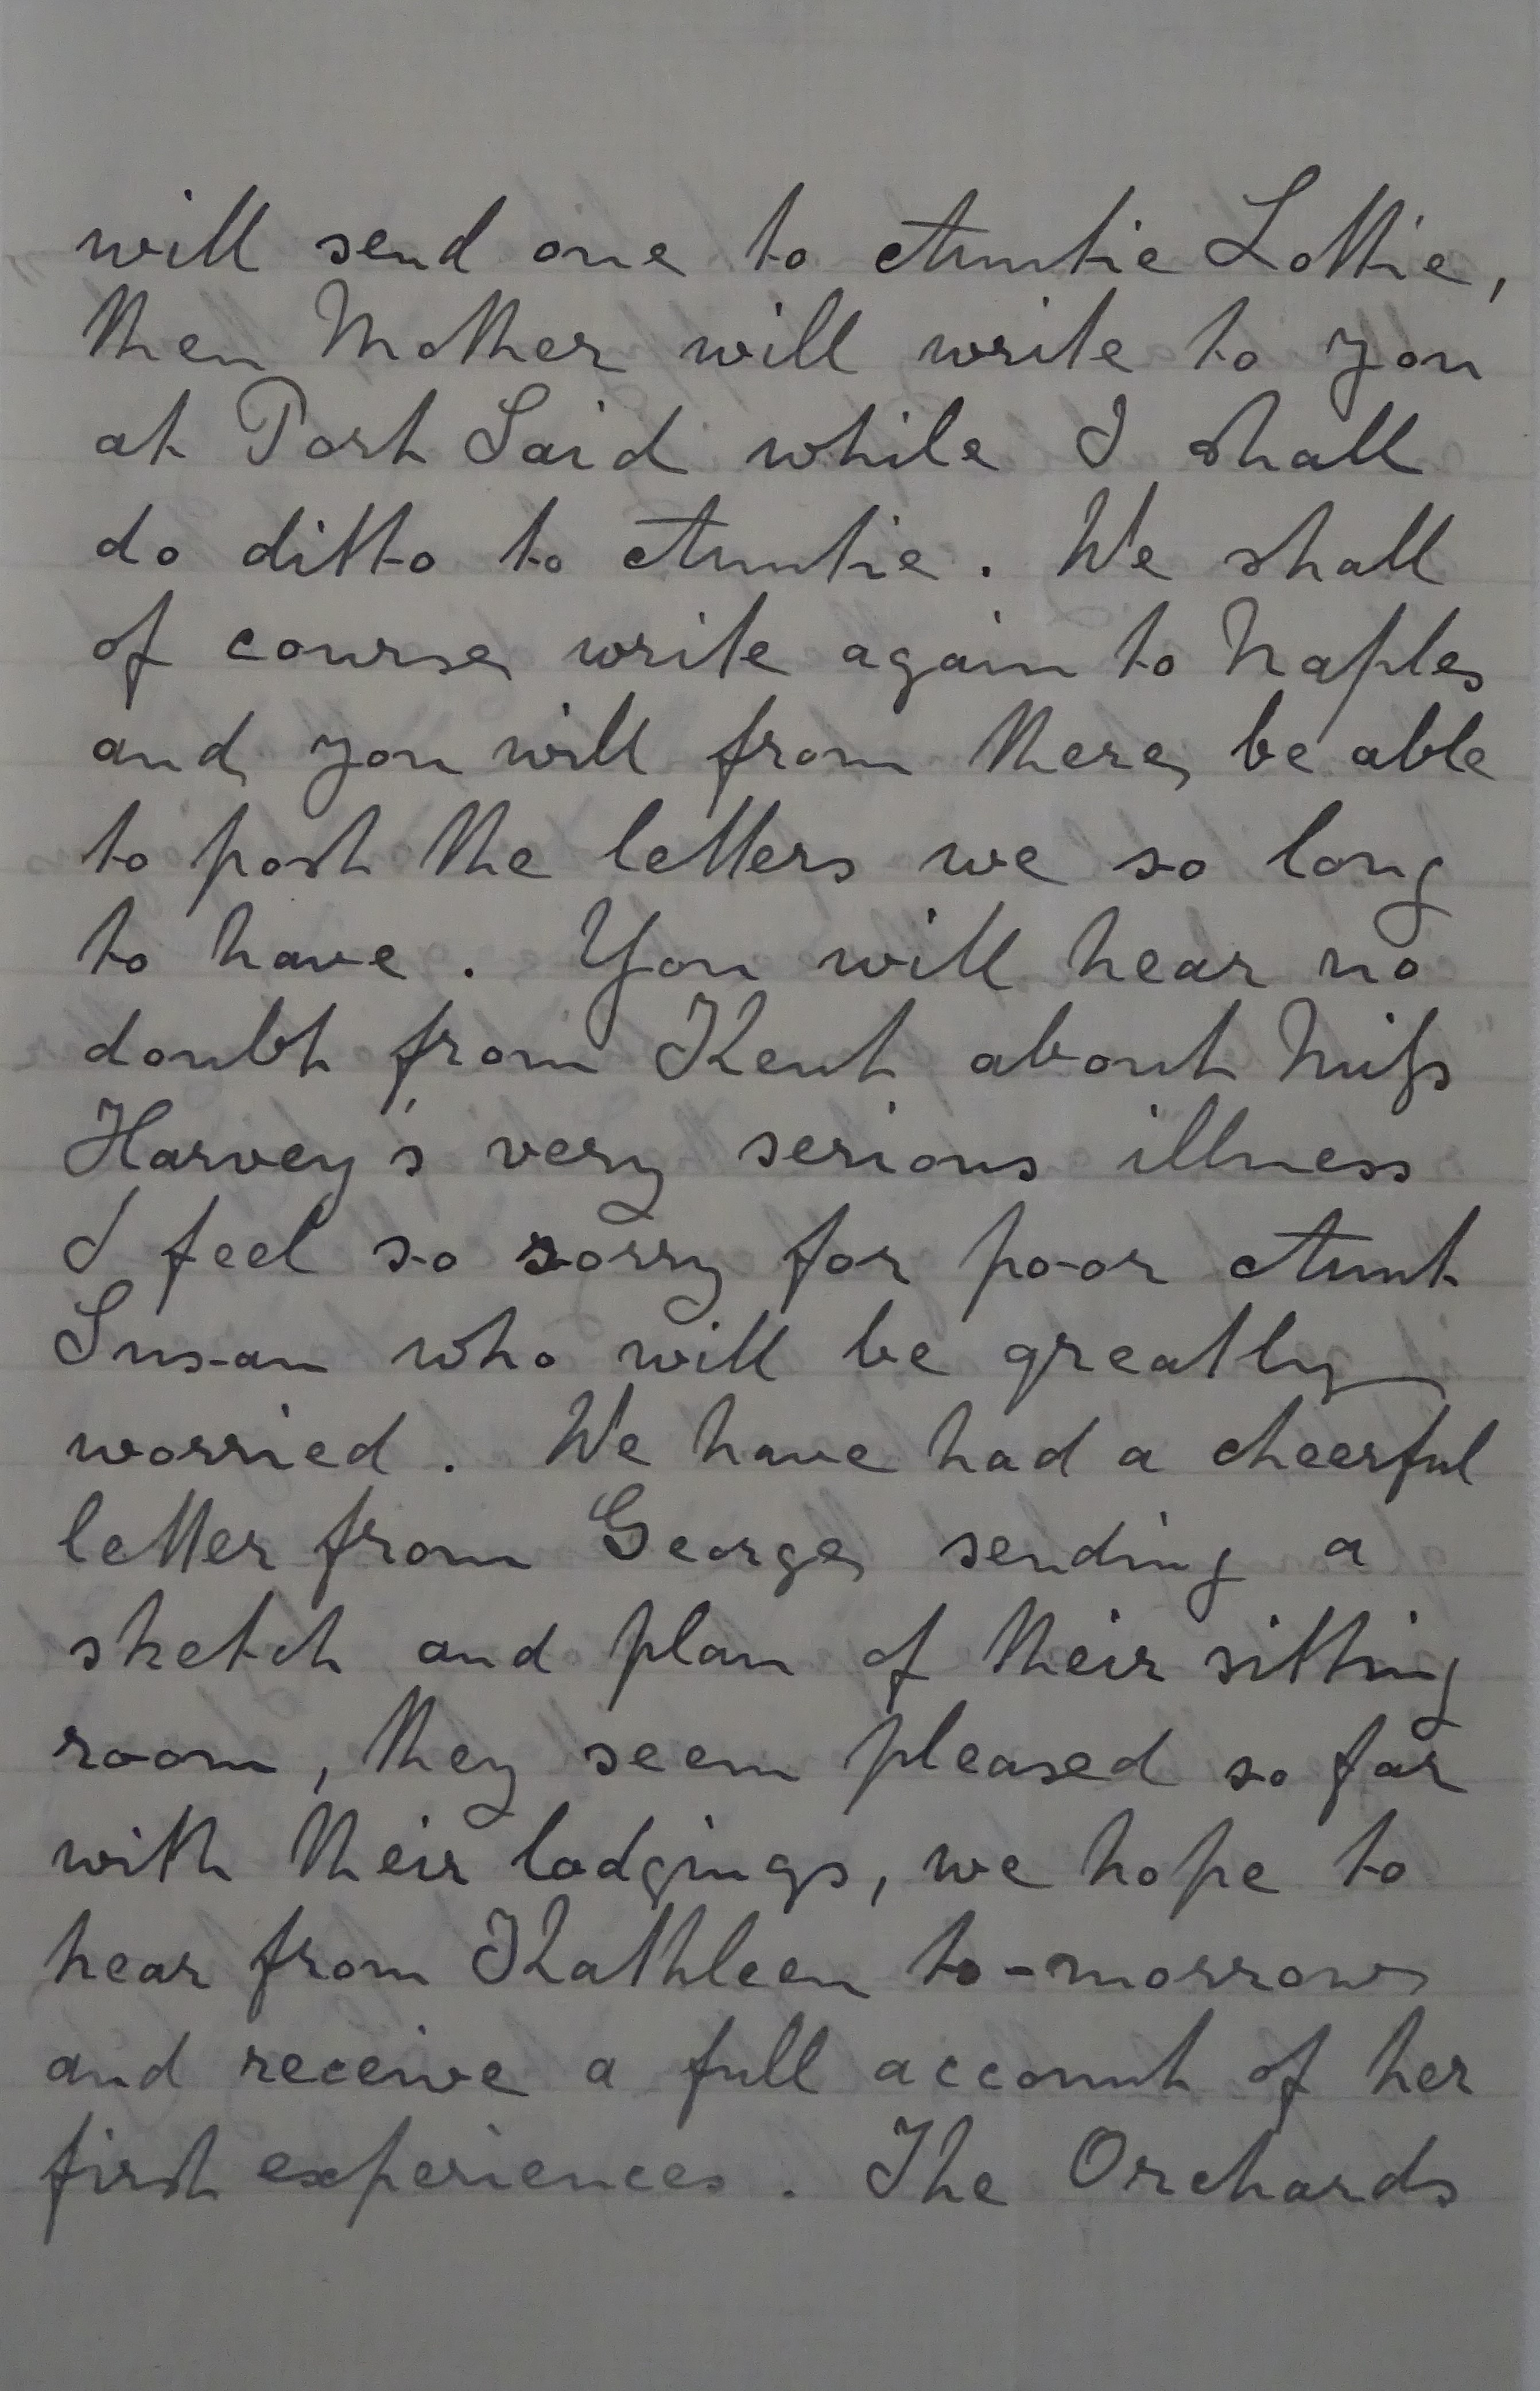 will send one to Auntie Lottie,
then Mother will write to you
at Port Said while I shall
do ditto to Auntie. We shall
of course write again to Naples
and you will from there be able
to post the letters we so long
to have. You will hear no
doubt from Kent about Miss
Harvey's very serious illness
I feel so sorry for poor Aunt
Susan who will be greatly
worried. We have had a cheerful
letter from George sending a
sketch and plan of their sitting
room, they seem pleased so far
with their lodgings, we hope to
hear from Kathleen to-morrow
and receive a full account of her
first experiences. The Orchards